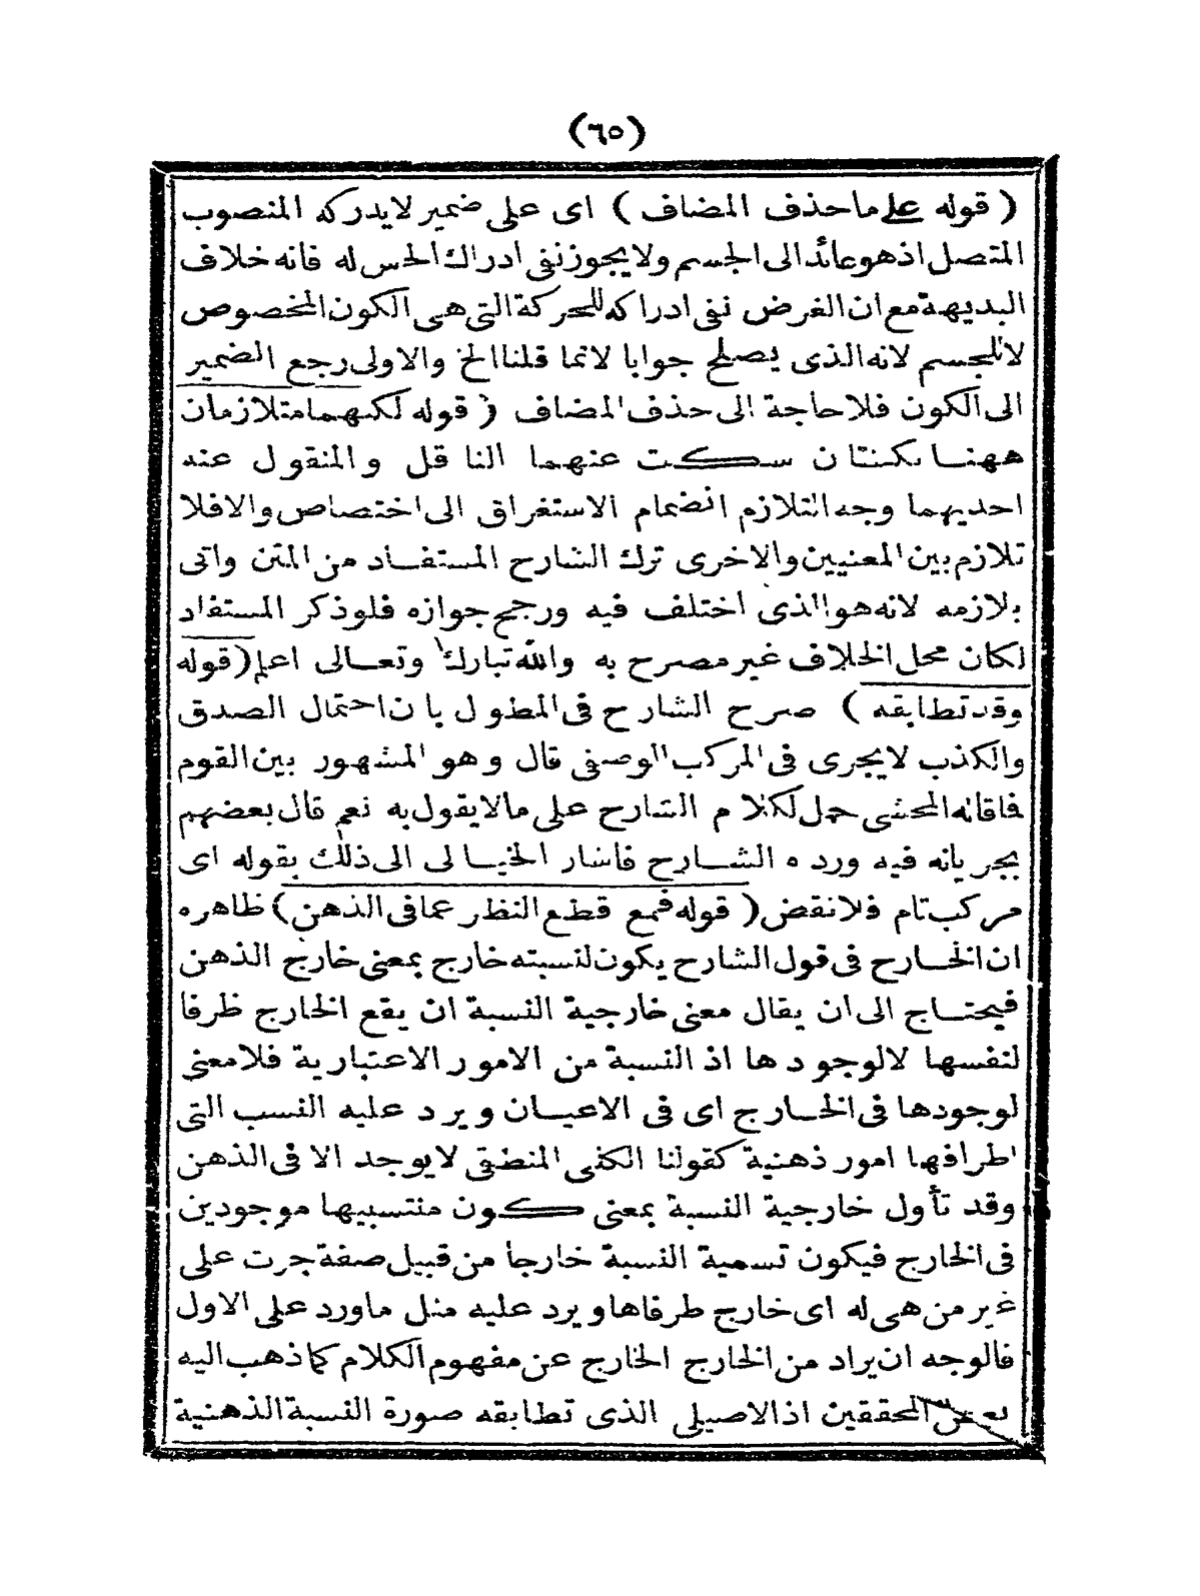 (٦٥)
( قوله على ما حذف المضاف ) اى على ضمير لا يدركه المنصوب
المتصل اذ هو عائد الى الجسم ولا يجوز نفى ادراك الحس له فانه خلاف
البديهة مع ان الغرض نفى ادراكه للحركة التى هى الكون المخصوص
لا للجسم لانه الذى يصلح جوابا لانما قلنا الخ والاولى رجع الضمير
الى الكون فلا حاجة الى حذف المضاف ( قوله لكنهما متلازمان
ههنا نكتتان سكت عنهما الناقل والمنقول عنه
احديهما وجه التلازم انضمام الاستغراق الى اختصاص والا فلا
تلازم بين المعنيين والاخرى ترك الشارح المستفاد من المتن واتى
بلازمه لانه هو الذى اختلف فيه ورجح جوازه فلو ذكر المستفاد
لكان محل الخلاف غير مصرح به والله تبارك وتعالى اعلم (قوله
وقد تطابقه ) صرح الشارح فى المطول بان احتمال الصدق
والكذب لا يجرى فى المركب الوصفى قال وهو المشهور بين القوم
فاقاله المحشى حمل لكلام الشارح على ما لا يقول به نعم قال بعضهم
بجريانه فيه ورده الشارح فاشار الخيالى الى ذلك بقوله اى
مركب تام فلا نقض ( قوله فمع قطع النظر عما فى الذهن ) ظاهره
ان الخارج فى قول الشارح يكون لنسبته خارج بمعنى خارج الذهن
فيحتاج الى ان يقال معنى خارجية النسبة ان يقع الخارج ظرفا
لنفسها لا لوجودها اذ النسبة من الامور الاعتبارية فلا معنى
لوجودها فى الخارج اى فى الاعيان ويرد عليه النسب التى
اطرافها امور ذهنية كقولنا الكلى المنطقى لا يوجد الا فى الذهن
وقد تأول خارجية النسبة بمعنى كون منتسبيها موجودين
فى الخارج فيكون تسمية النسبة خارجا من قبيل صفة جرت على
غير من هى له اى خارج طرفاها ويرد عليه مثل ما ورد على الاول
فالوجه ان يراد من الخارج الخارج عن مفهوم الكلام كما ذهب اليه
بعض المحققين اذ الاصيلى الذى تطابقه صورة النسبة الذهنية